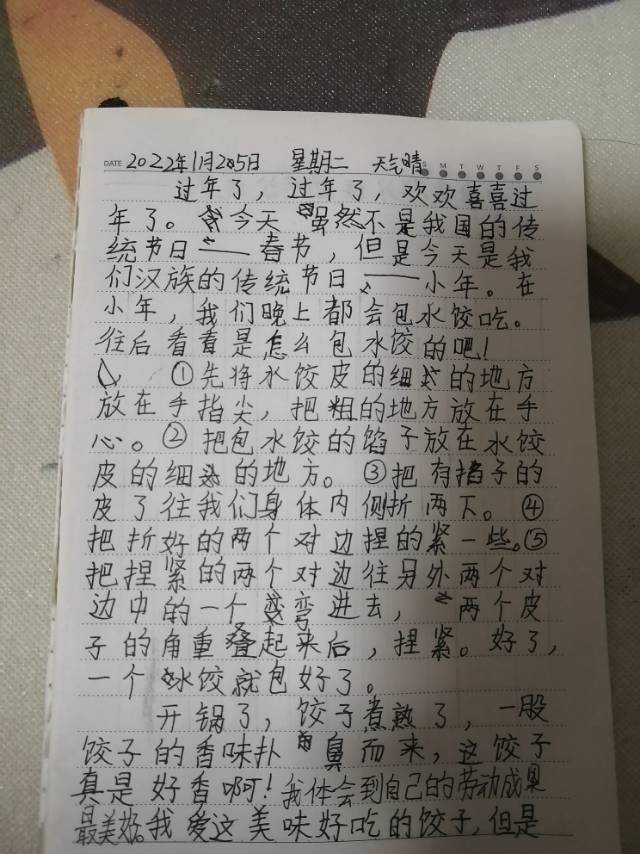 DATE 2022年1月25日 星期二 天气晴 S M T W T F S
过年了，过年了，欢欢喜喜过
年了。今天虽然不是我国的传
统节日——春节，但是今天是我
们汉族的传统节日——小年。在
小年，我们晚上都会包水饺吃。
往后看看是怎么包水饺的吧！
①先将水饺皮的细的地方
放在手指尖，把粗的地方放在手
心。②把包水饺的馅子放在水饺
皮的细的地方。③把有掐子的
皮了往我们身体内侧折两下。④
把折好的两个对边捏的紧一些。⑤
把捏紧的两个对边往另外两个对
边中的一个弯进去，两个皮
子的角重叠起来后，捏紧。好了，
一个水饺就包好了。
开锅了，饺子煮熟了，一股
饺子的香味扑鼻而来，这饺子
真是好香啊！我体会到自己的劳动成果
最美好。我爱这美味好吃的饺子，但是